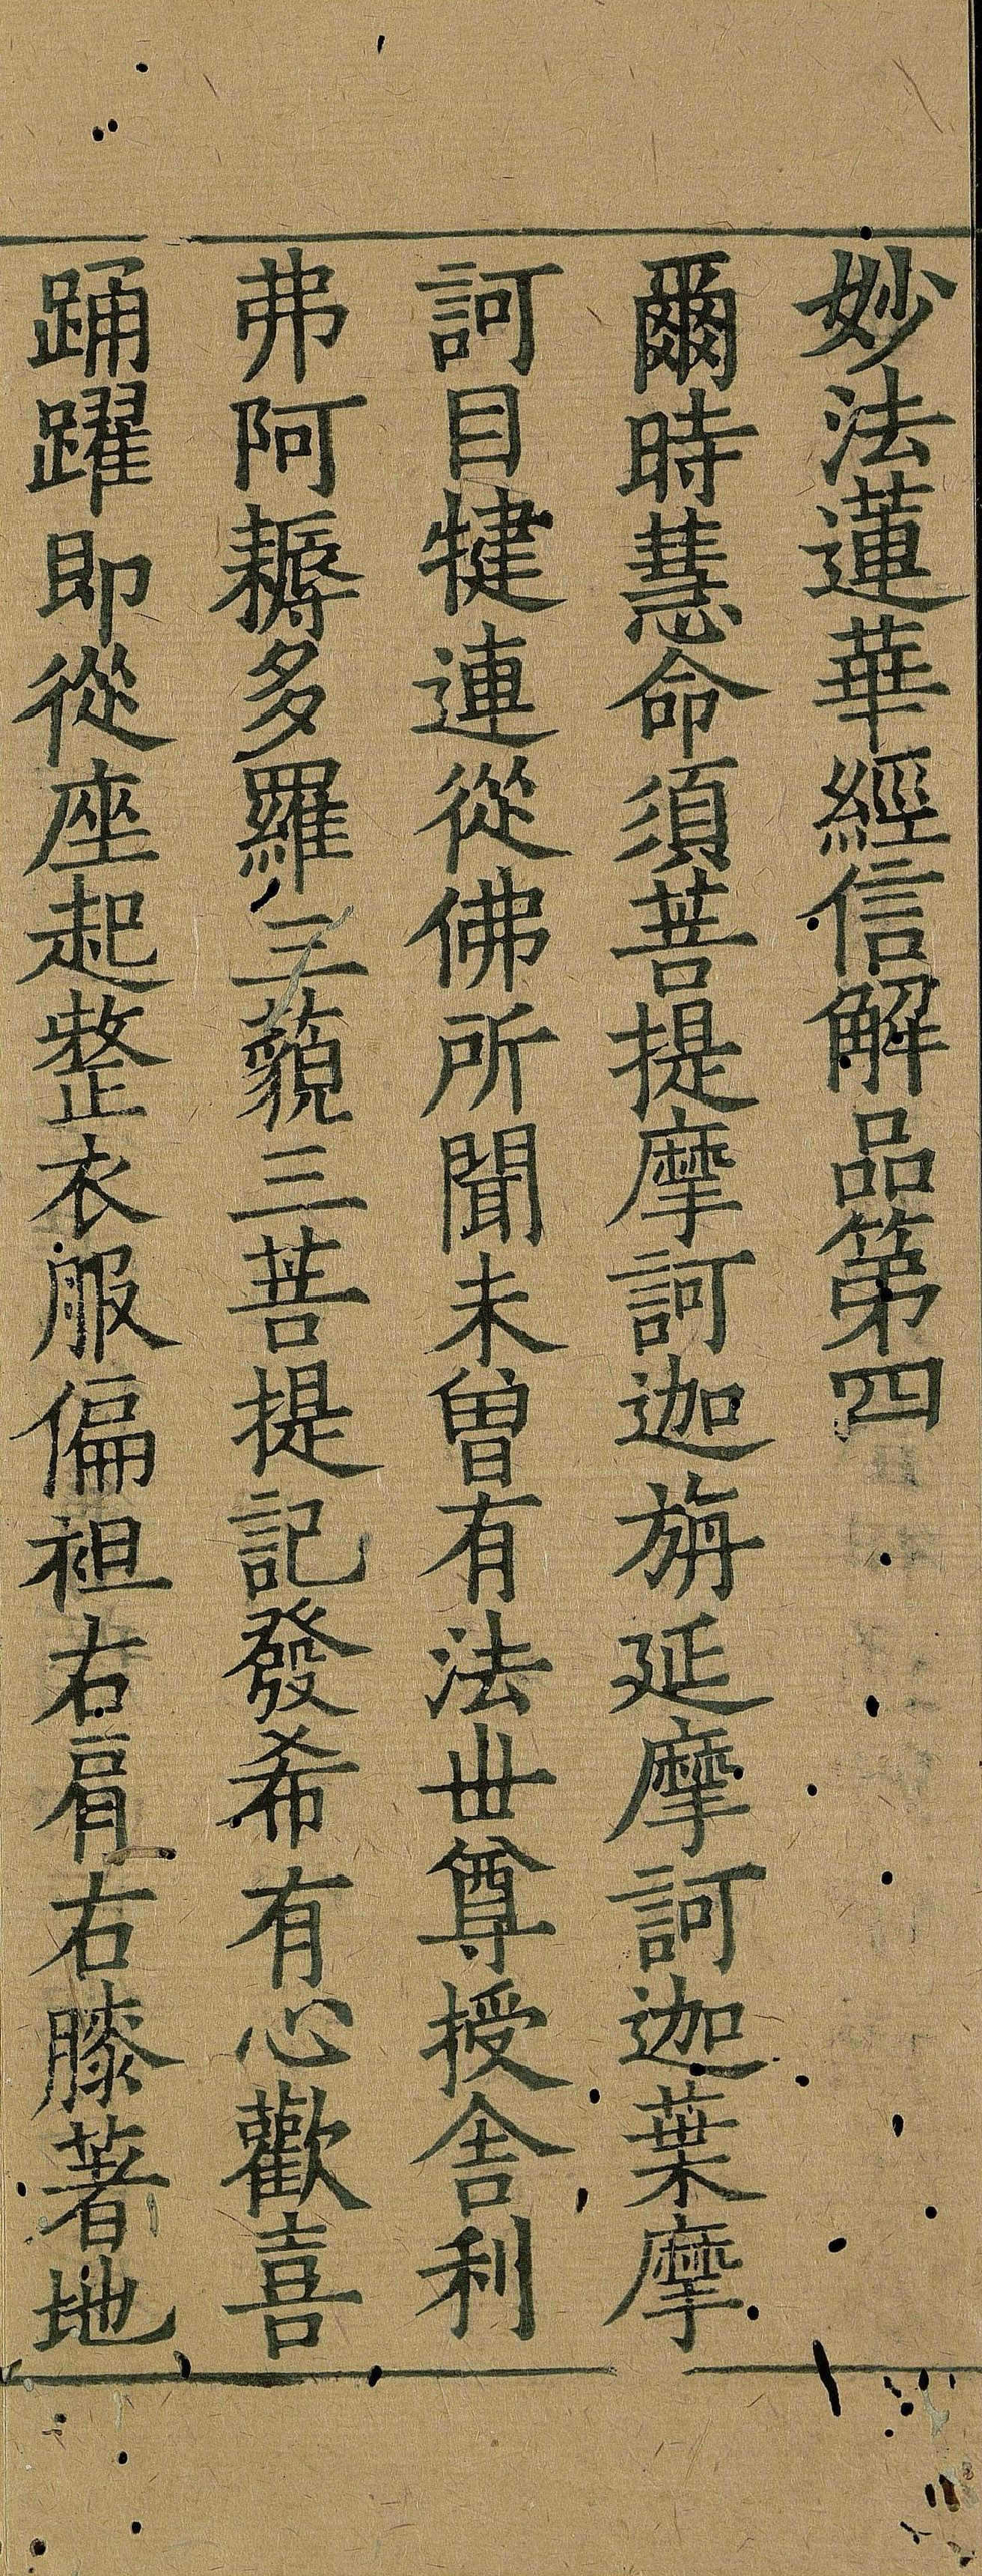 妙法蓮華經信解品第四
爾時慧命須菩提摩訶迦旃延摩訶迦葉摩
訶目犍連從佛所聞未曾有法世尊授舍利
弗阿耨多羅三藐三菩提記發希有心歡喜
踊躍即從座起整衣服偏袒右肩右膝著地